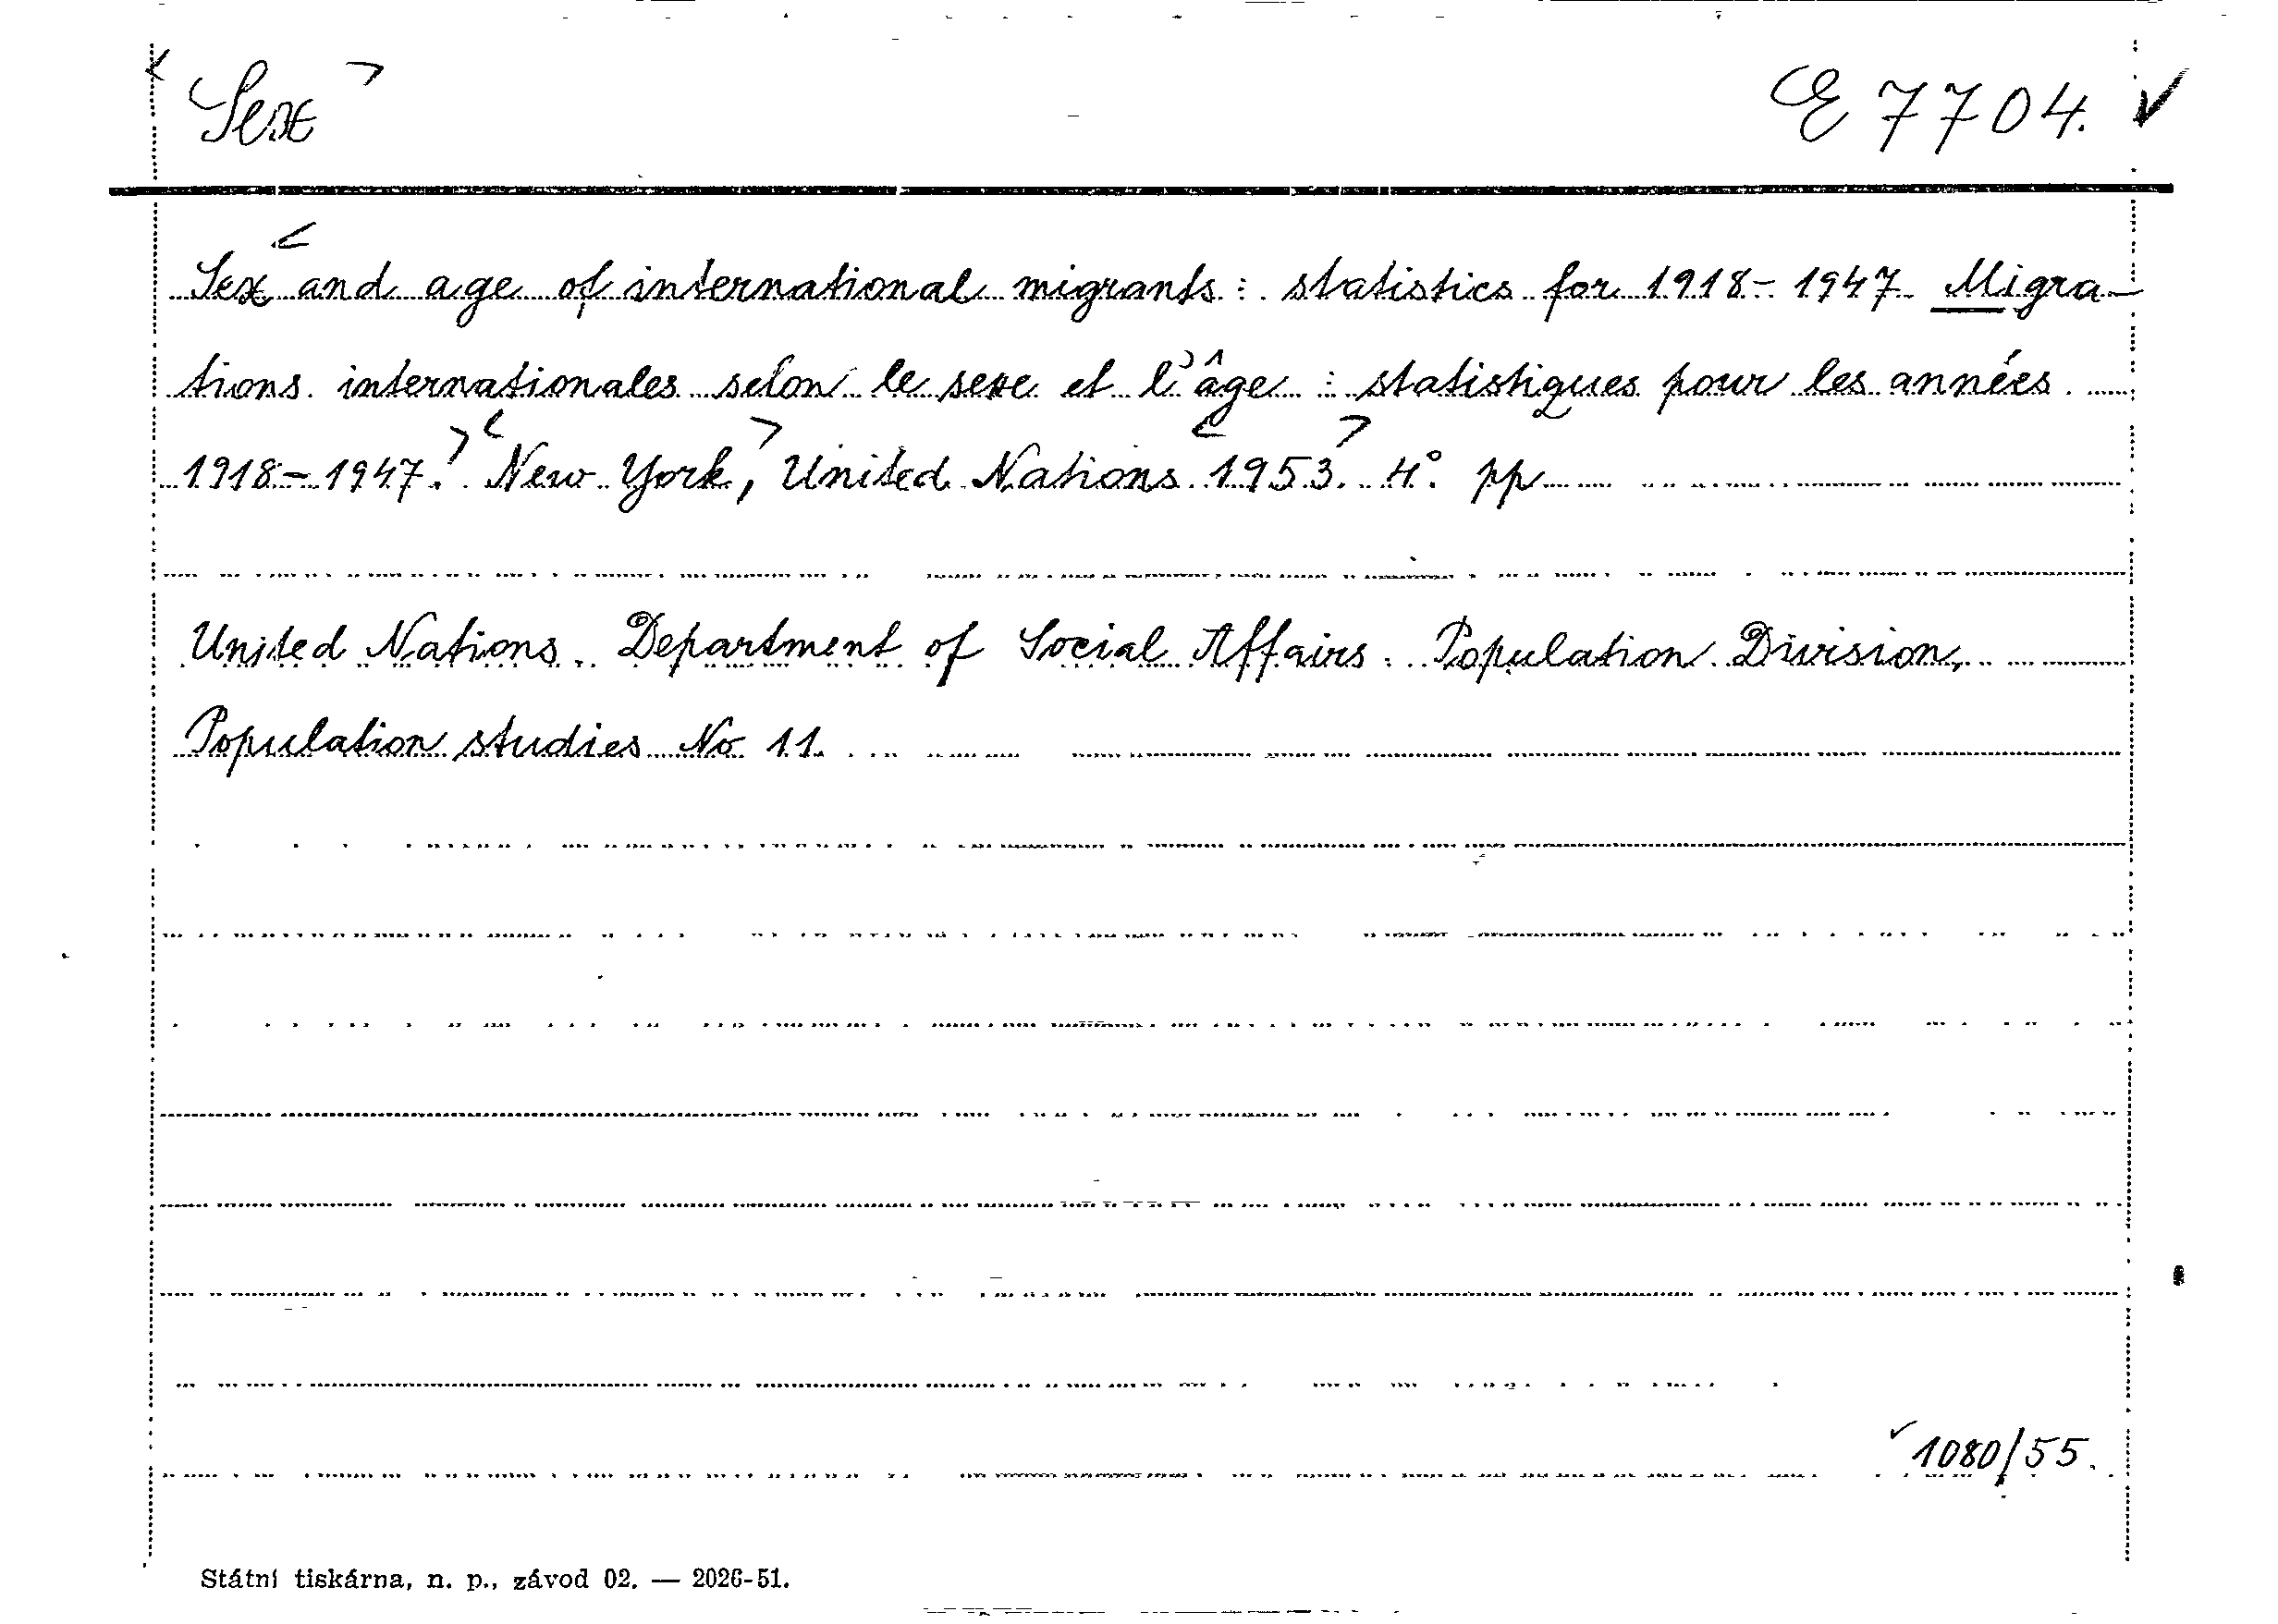 Sex E 7704.
Sex and age of international migrants: statistics for 1918-1947 Migra-
tions internationales selon le sexe et l'âge: statistiques pour les années
1918-1947. New York, United Nations 1953. 4° pp
United Nations. Department of Social Affairs. Population Division,
Population studies No 11.
1080/55.
Státní tiskárna, n. p., závod 02. — 2026-51.